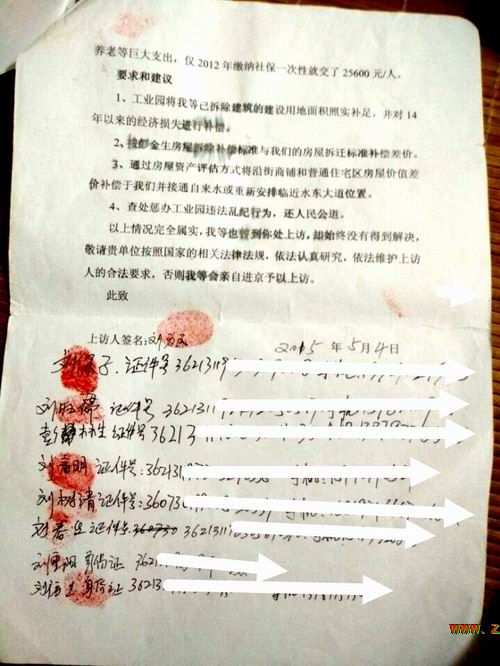 养老等巨大支出，仅2012年缴纳社保一次性就交了25600元/人。
要求和建议
1、工业园将我等已拆除建筑的建设用地面积照实补足，并对14
年以来的经济损失进行补偿。
2、按彭金生房屋拆除补偿标准与我们的房屋拆迁标准补偿差价。
3、通过房屋资产评估方式将沿街商铺和普通住宅区房屋价值差
价补偿于我们并接通自来水或重新安排临近水东大道位置。
4、查处惩办工业园违法乱纪行为，还人民公道。
以上情况完全属实，我等也曾到你处上访，却始终没有得到解决，
敬请贵单位按照国家的相关法律法规，依法认真研究，依法维护上访
人的合法要求，否则我等会亲自进京予以上访。
此致
上访人签名：刘
2015年5月4日
证件号36213119
刘 证件号362131
彭 生证件号36213
刘 明 证件号：36213119
刘 清 证件号：360736
刘 生证件号360730 36213119
刘 身份证 36213
刘 身份证 36213
www.z